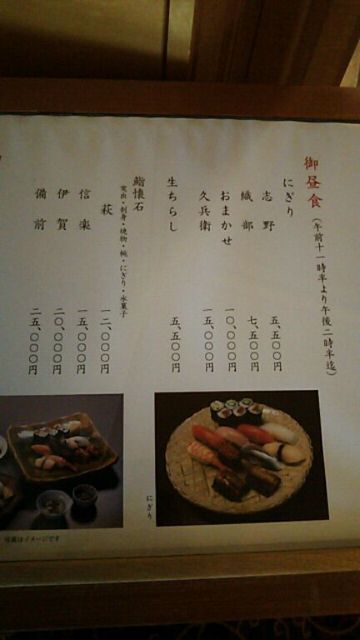 御昼食(午前十一時半より午後二時半迄)
にぎり
志野 五、五〇〇円
織部 七、五〇〇円
おまかせ 一〇、〇〇〇円
久兵衛 一五、〇〇〇円
生ちらし 五、五〇〇円
鮨懐石
突出・刺身・焼物・椀・にぎり・水菓子
萩 一二、〇〇〇円
信楽 一五、〇〇〇円
伊賀 二〇、〇〇〇円
備前 二五、〇〇〇円
にぎり
写真はイメージです